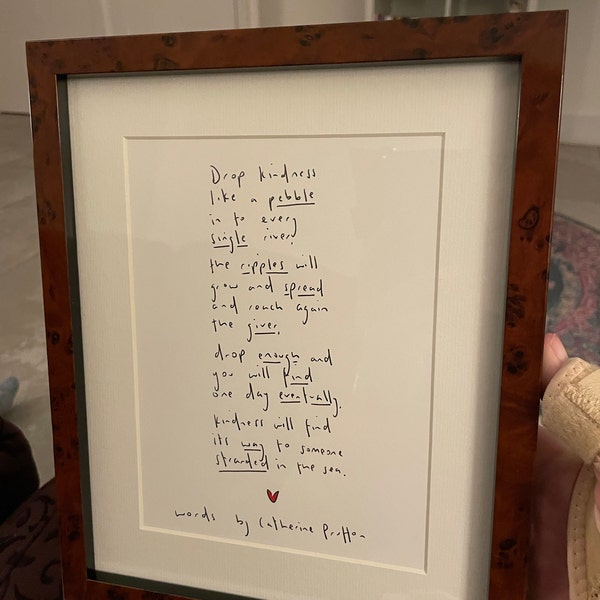 Drop kindness
like a pebble
in to every
single river.
the ripples will
grow and spread
and reach again
the giver.
drop enough and
you will find
one day eventually.
kindness will find
its way to someone
stranded in the sea.
words by Catherine